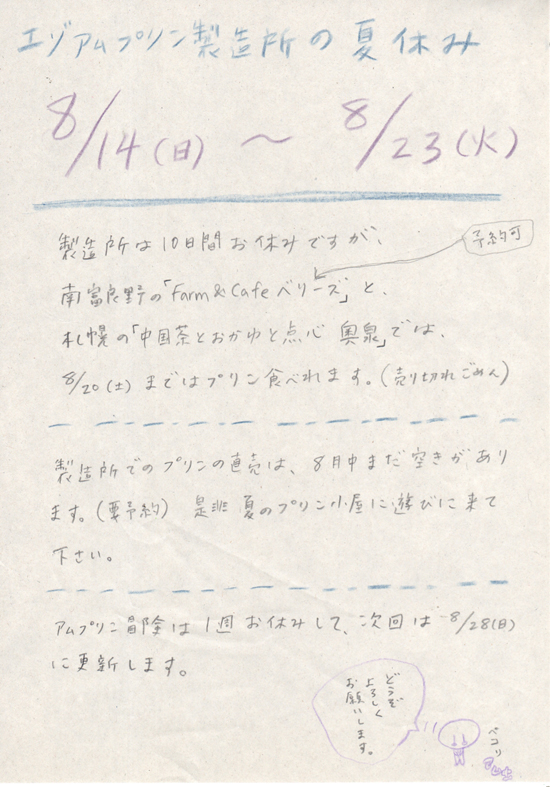 エゾアムプリン製造所の夏休み
8/14(日) 〜 8/23(火)
製造所は10日間お休みですが、
予約可
南富良野の「Farm&Cafe ベリーズ」と、
札幌の「中国茶とおかゆと点心 奥泉」では、
8/20(土)まではプリン食べれます。(売り切れごめん)
製造所でのプリンの直売は、8月中まだ空きがあり
ます。(要予約) 是非夏のプリン小屋に遊びに来て
下さい。
アムプリン冒険は1週お休みして、次回は8/28(日)
に更新します。
どうぞ
よろしく
お願いします。
ペコリ